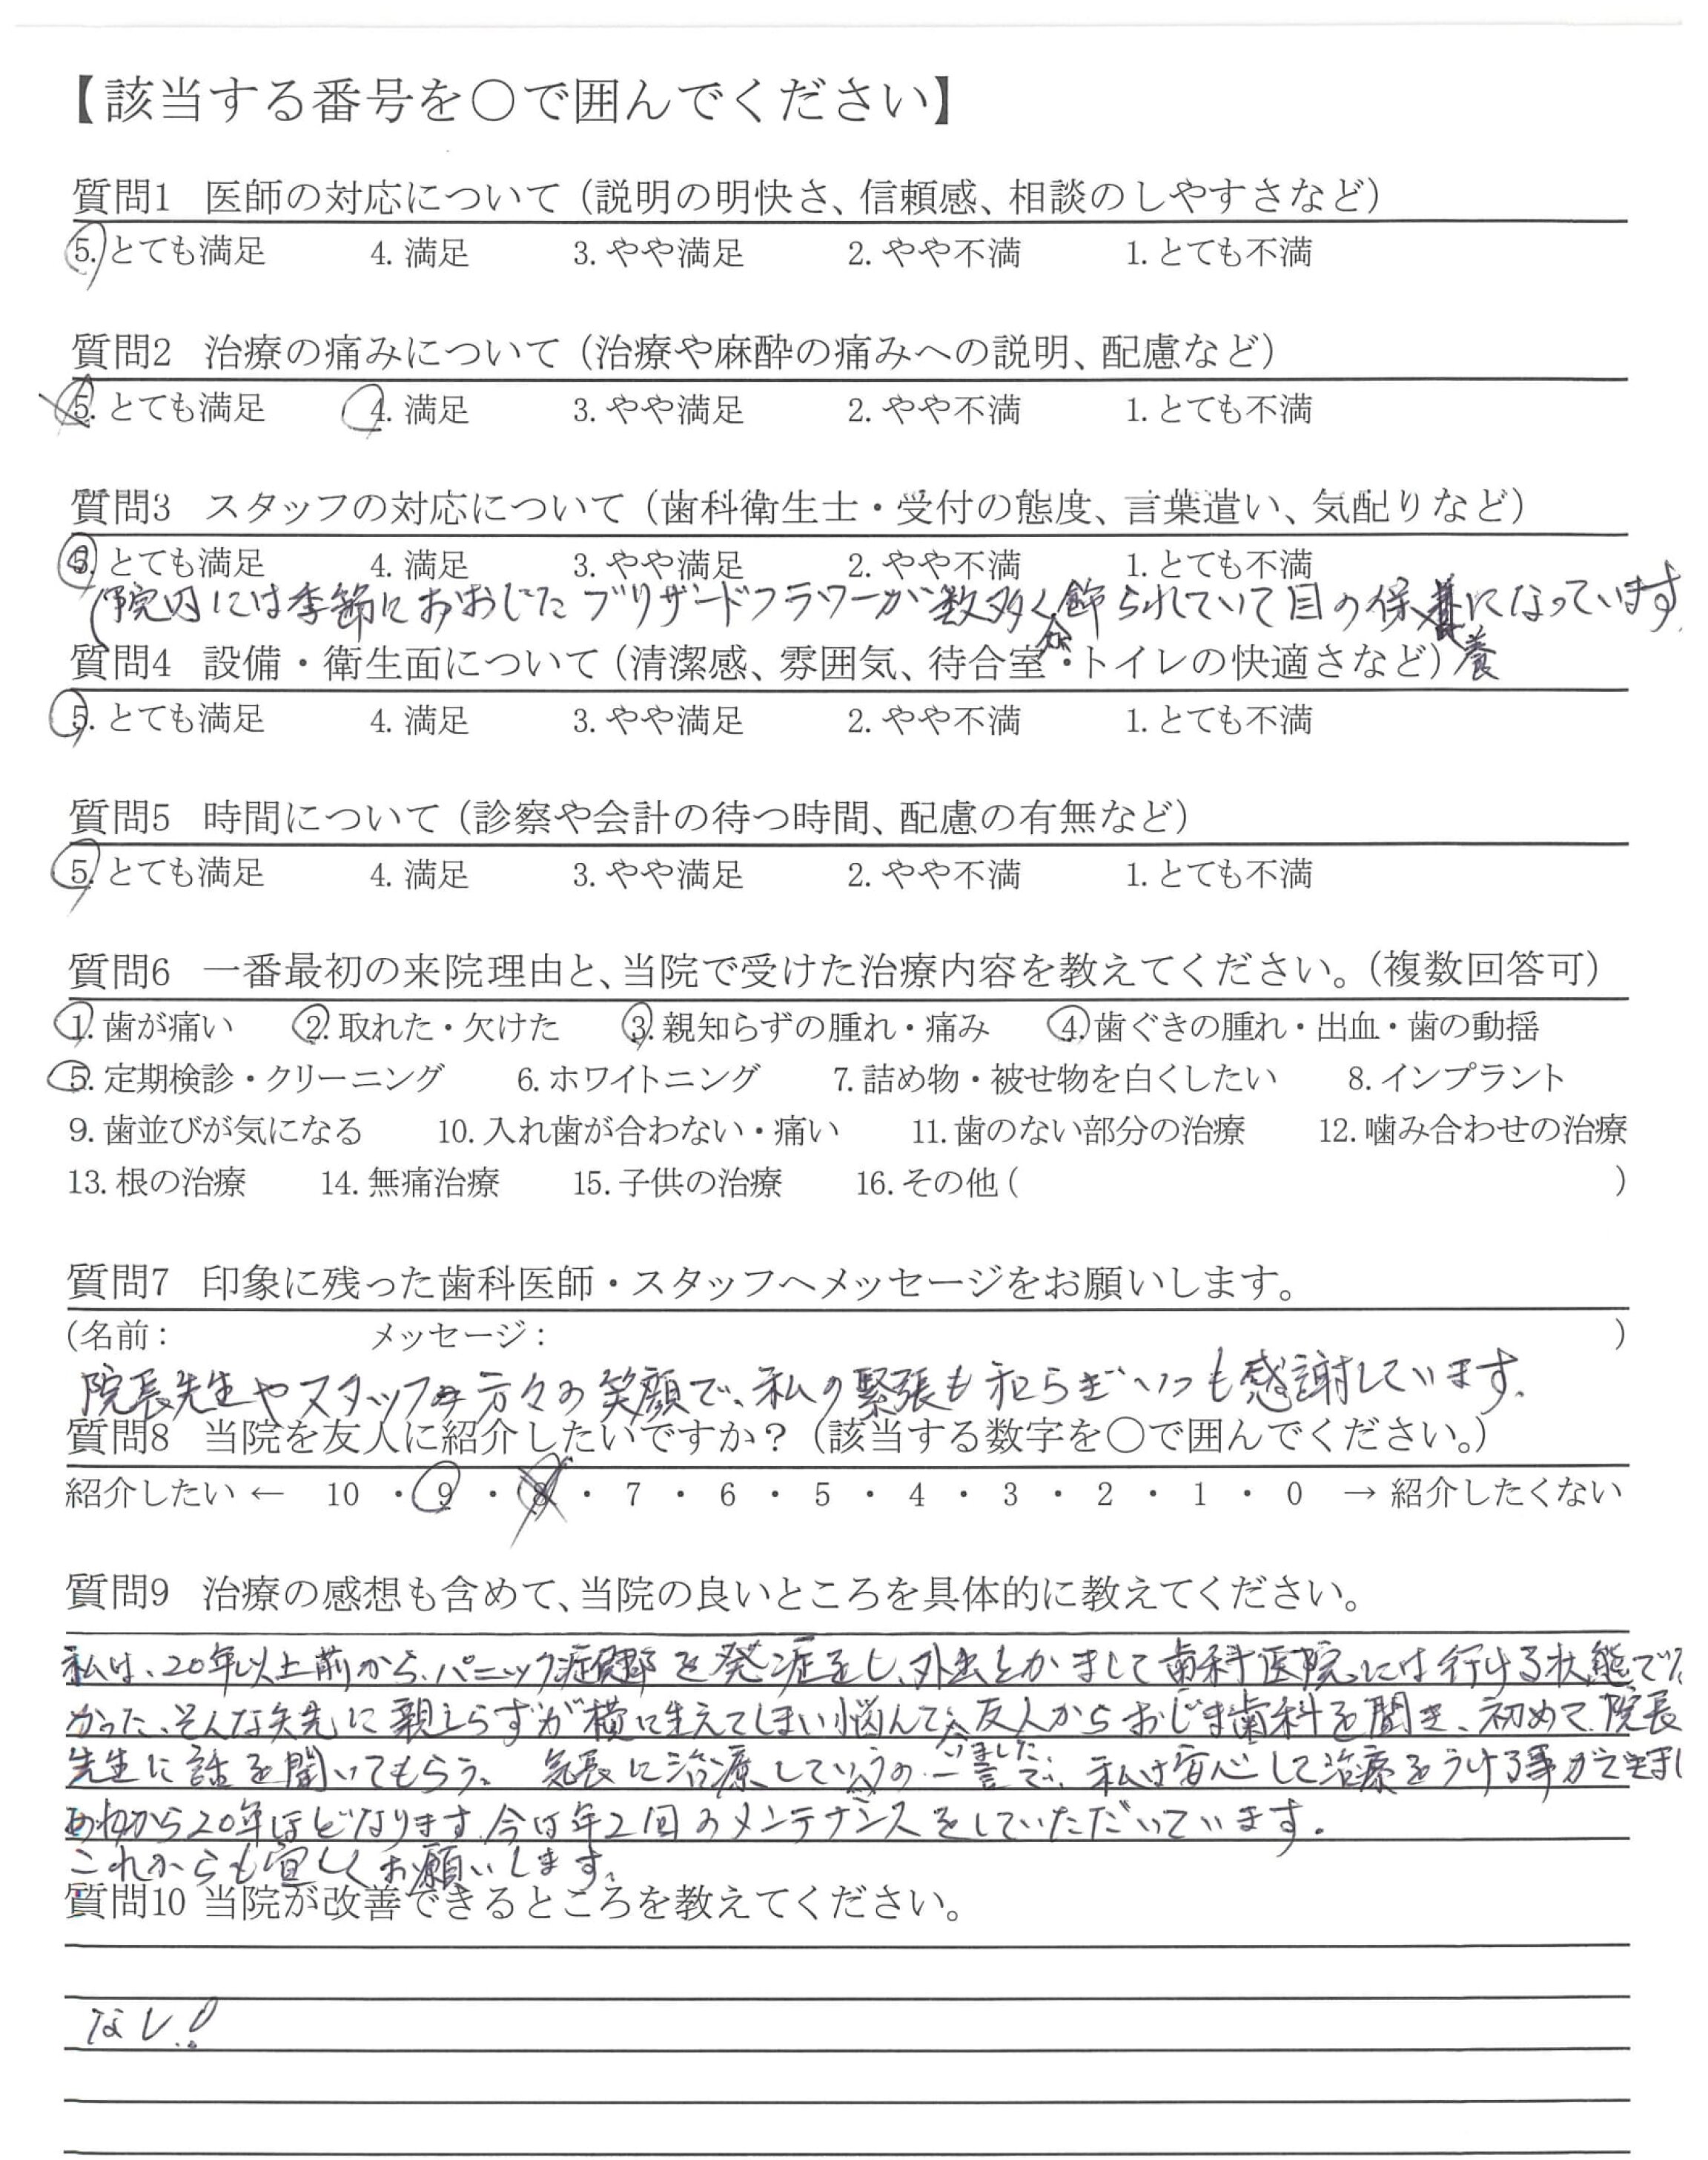 【該当する番号を○で囲んでください】
質問1 医師の対応について（説明の明快さ、信頼感、相談のしやすさなど）
5. とても満足 4. 満足 3. やや満足 2. やや不満 1. とても不満
質問2 治療の痛みについて（治療や麻酔の痛みへの説明、配慮など）
5. とても満足 4. 満足 3. やや満足 2. やや不満 1. とても不満
質問3 スタッフの対応について（歯科衛生士・受付の態度、言葉遣い、気配りなど）
5. とても満足 4. 満足 3. やや満足 2. やや不満 1. とても不満
院内には季節におおじたブリザードフラワーが数多く飾られていて目の保養になっています
質問4 設備・衛生面について（清潔感、雰囲気、待合室・トイレの快適さなど）
5. とても満足 4. 満足 3. やや満足 2. やや不満 1. とても不満
質問5 時間について（診察や会計の待つ時間、配慮の有無など）
5. とても満足 4. 満足 3. やや満足 2. やや不満 1. とても不満
質問6 一番最初の来院理由と、当院で受けた治療内容を教えてください。（複数回答可）
1. 歯が痛い 2. 取れた・欠けた 3. 親知らずの腫れ・痛み 4. 歯ぐきの腫れ・出血・歯の動揺
5. 定期検診・クリーニング 6. ホワイトニング 7. 詰め物・被せ物を白くしたい 8. インプラント
9. 歯並びが気になる 10. 入れ歯が合わない・痛い 11. 歯のない部分の治療 12. 噛み合わせの治療
13. 根の治療 14. 無痛治療 15. 子供の治療 16. その他 ( )
質問7 印象に残った歯科医師・スタッフへメッセージをお願いします。
(名前： メッセージ： )
院長先生やスタッフの方々の笑顔で、私の緊張も和らぎいつも感謝しています。
質問8 当院を友人に紹介したいですか？（該当する数字を○で囲んでください。）
紹介したい ← 10 ・ 9 ・ 8 ・ 7 ・ 6 ・ 5 ・ 4 ・ 3 ・ 2 ・ 1 ・ 0 → 紹介したくない
質問9 治療の感想も含めて、当院の良いところを具体的に教えてください。
私は、20年以上前から、パニック症を発症をし、外出とかまして歯科医院には行ける状態でな
かった、そんな矢先に親しらずが横に生えてしまい悩んで、友人からおじま歯科を聞き、初めて院長
先生に話を聞いてもらいました 気長に治療していこうの一言で、私は安心して治療をうける事ができまし
あれから20年ほどなります。今は年2回のメンテナンスをしていただいています。
これからも宜しくお願いします。
質問10 当院が改善できるところを教えてください。
なし！